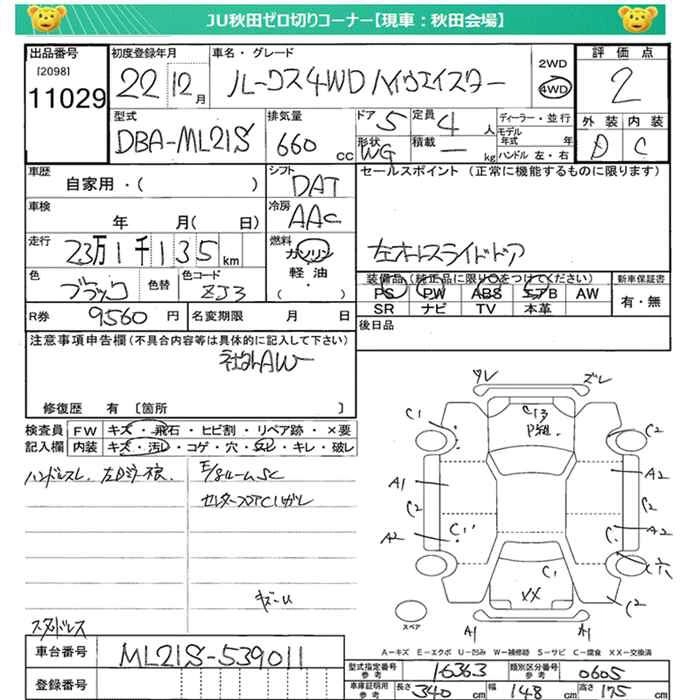 JU秋田ゼロ切りコーナー【現車：秋田会場】
出品番号
[2098]
11029
初度登録年月
22 12月
車名・グレード
ルークス4WD ハイウェイスター
2WD
4WD
評価点
2
外装 内装
D C
型式
DBA-ML21S
排気量
660 cc
ドア 5
定員 4 人
形状 WG
積載 － kg
ディーラー・並行
モデル年式 年
ハンドル 左・右
車歴
自家用・( )
シフト
DAT
車検
年 月( 日)
冷房
AAC
走行
23万1千135 km
燃料
ガソリン
軽油
・( )
色
ブラック
色替
色コード
ZJ3
R券 9560 円
名変期限 月 日
セールスポイント (正常に機能するものに限ります)
左オートスライドドア
装備品(純正品に限り○をつけてください)
PS PW ABS エアB AW
SR ナビ TV 本革
新車保証書
有・無
後日品
注意事項申告欄(不具合内容等は具体的に記入して下さい)
社外AW
修復歴 有 〔箇所 〕
検査員記入欄
FW キズ・飛石・ヒビ割・リペア跡・×要
内装 キズ・汚レ・コゲ・穴・ヌレ・キレ・破レ
ハンドルスレ、左Dミラー不良
E/gルームSC
センターフロアCハガレ
キズ・U
スタッドレス
ズレ
ズレ
C1
C2
A1
A2
C2
C2
A2
A2
C1
C1
C穴
C2
XX
A1
A1
スペア
A－キズ E－エクボ U－凹み W－補修跡 S－サビ C－腐食 XX－交換済
車台番号
ML21S-539011
登録番号
型式指定番号
参考
16363
類別区分番号
参考
0605
車庫証明用
参考
長さ 340 cm
幅 148 cm
高さ 175 cm